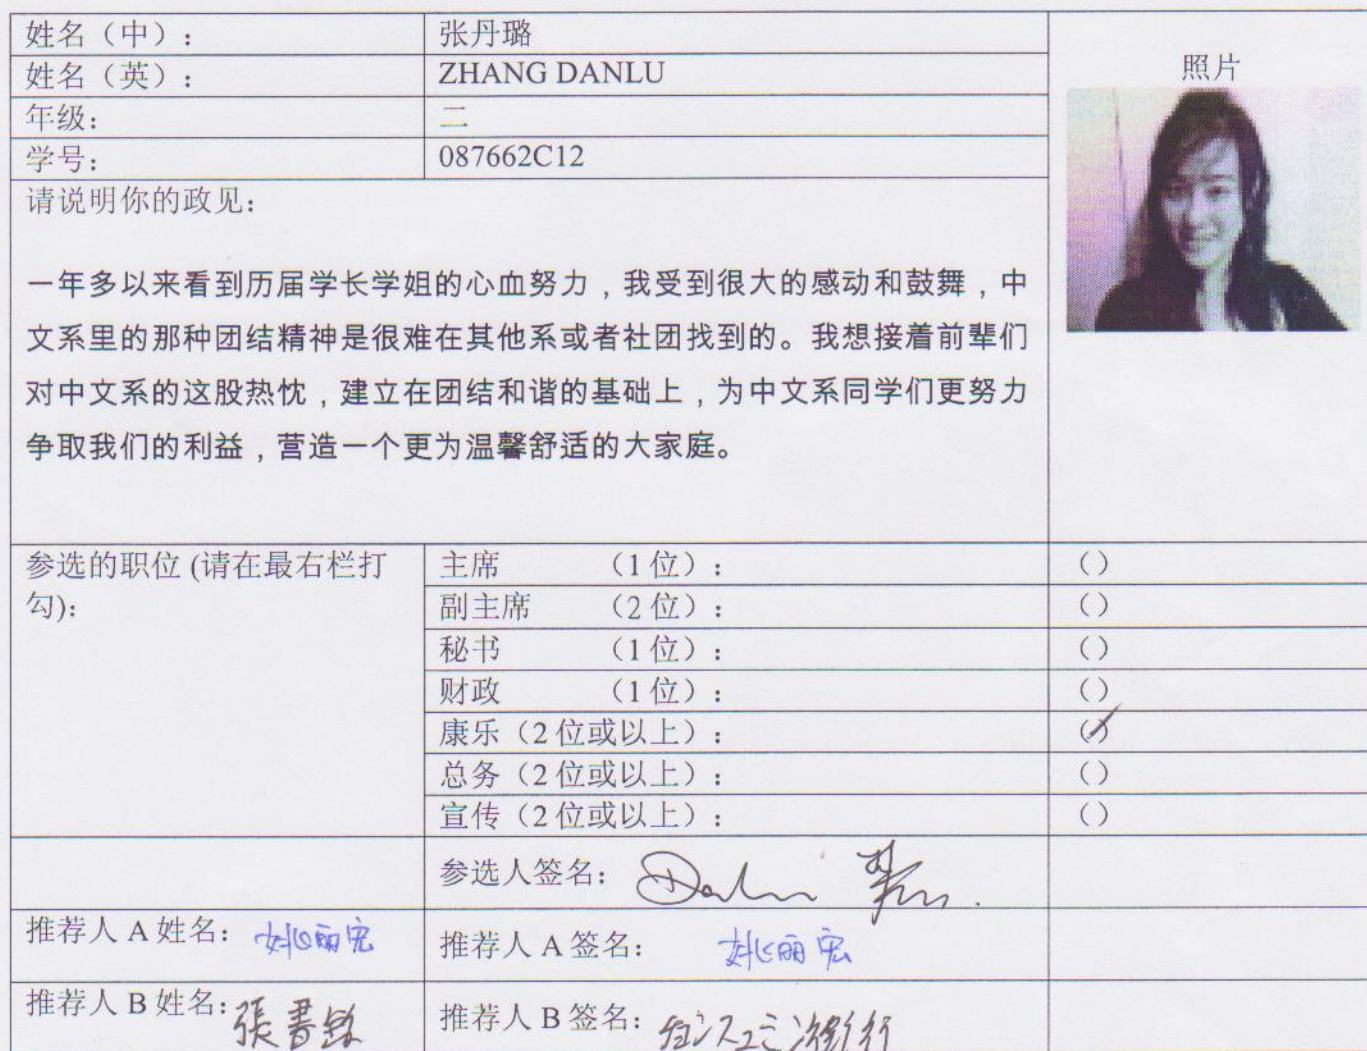 姓名（中）： 张丹璐
照片
姓名（英）： ZHANG DANLU
年级： 二
学号： 087662C12
请说明你的政见：
一年多以来看到历届学长学姐的心血努力，我受到很大的感动和鼓舞，中
文系里的那种团结精神是很难在其他系或者社团找到的。我想接着前辈们
对中文系的这股热忱，建立在团结和谐的基础上，为中文系同学们更努力
争取我们的利益，营造一个更为温馨舒适的大家庭。
参选的职位 (请在最右栏打
勾):
主席 （1 位）： ( )
副主席 （2 位）： ( )
秘书 （1 位）： ( )
财政 （1 位）： ( )
康乐（2 位或以上）： (✓)
总务（2 位或以上）： ( )
宣传（2 位或以上）： ( )
参选人签名：
推荐人 A 姓名： 姚丽宏 推荐人 A 签名： 姚丽宏
推荐人 B 姓名： 張書 推荐人 B 签名：